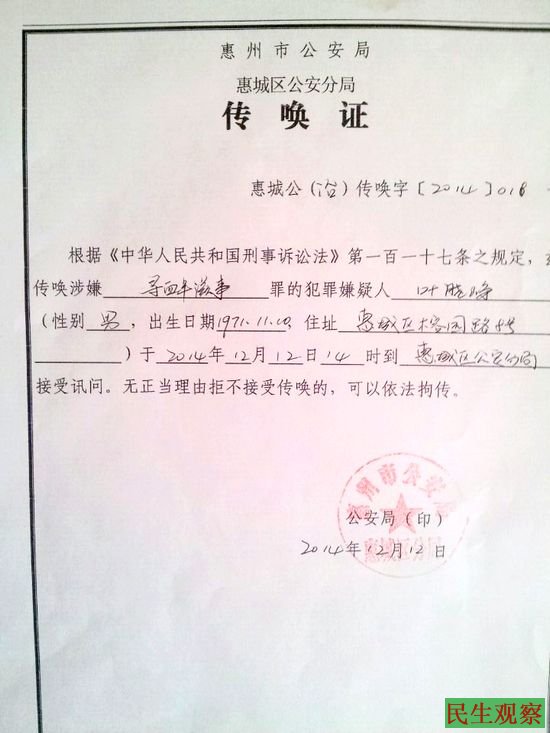 惠州市公安局
惠城区公安分局
传唤证
惠城公（治）传唤字［2014］018
根据《中华人民共和国刑事诉讼法》第一百一十七条之规定，
传唤涉嫌 寻衅滋事 罪的犯罪嫌疑人 叶
（性别 男，出生日期1971.11.10，住址 惠城区 园路 号
）于 2014年12月12日14 时到 惠城区公安分局
接受讯问。无正当理由拒不接受传唤的，可以依法拘传。
惠州市公安局
惠城区分局
公安局（印）
2014年12月12日
民生观察